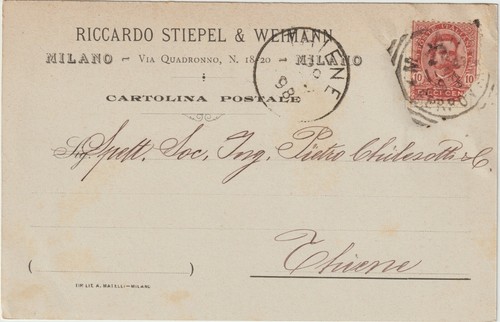 RICCARDO STIEPEL & WEIMANN
MILANO - VIA QUADRONNO, N. 18-20 - MILANO
CARTOLINA POSTALE
THIENE
98
10 10
Sig. Spett. Soc. Ing. Pietro Chilesotti & C.
Thiene
( )
TIP. LIT. A. MATELLI-MILANO